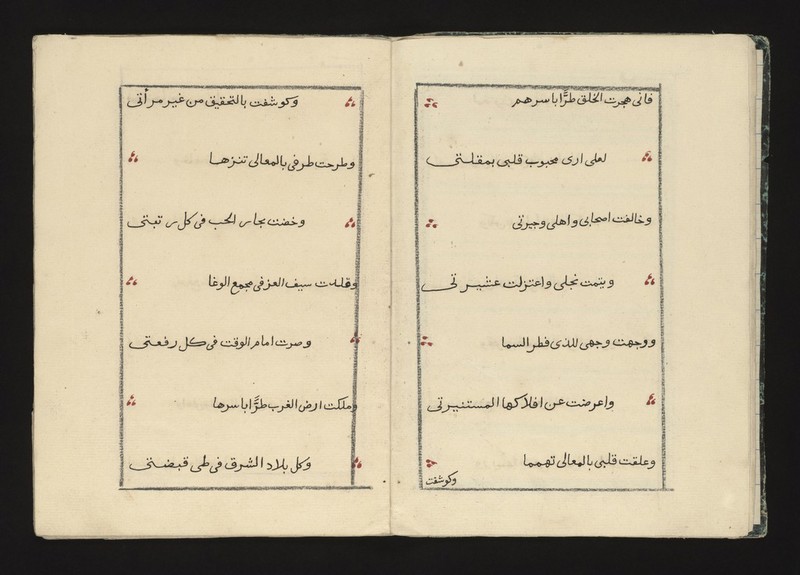 فانى هجرت الخلق طرًّا باسرهم
لعلى ارى محبوب قلبى بمقلتى
وخالفت اصحابى واهلى وجيرتى
ويتمت نجلى واعتزلت عشيرتى
ووجهت وجهى للذى فطر السما
واعرضت عن افلاكها المستنيرتى
وعلقت قلبى بالمعالى تهمما
وكوشفت
وكوشفت بالتحقيق من غير مرأتى
وطرحت طرفى بالمعالى تنزها
وخضت بحار الحب فى كل رتبتى
وقلدت سيف العز فى مجمع الوغا
وصرت امام الوقت فى كل رفعتى
وملكت ارض الغرب طرًّا باسرها
وكل بلاد الشرق فى طى قبضتى